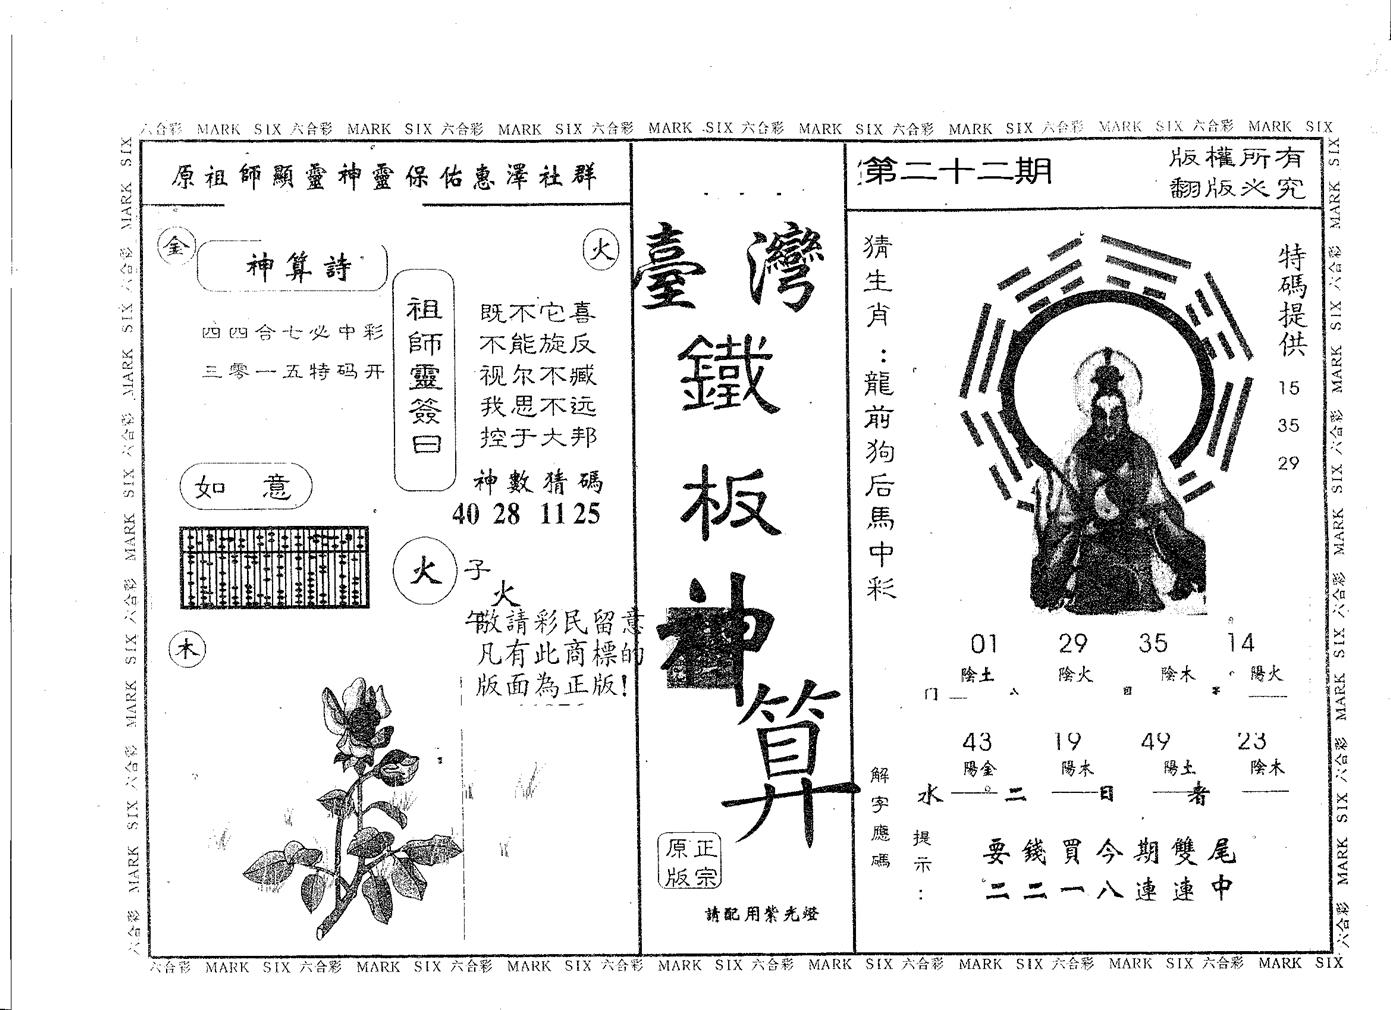 六合彩 MARK SIX 六合彩 MARK SIX 六合彩 MARK SIX 六合彩 MARK SIX 六合彩 MARK SIX 六合彩 MARK SIX 六合彩 MARK SIX 六合彩 MARK SIX
原祖師顯靈神靈保佑惠澤社群
金
神算詩
火
四四合七必中彩
三零一五特码开
祖師靈簽曰
既不它喜
不能旋反
视尔不臧
我思不远
控于大邦
神數猜碼
40 28 11 25
如 意
火
子
火
午
敬請彩民留意
凡有此商標的
版面為正版!
木
臺灣
鐵
板
神
算
正宗
原版
請配用紫光燈
第二十二期
版權所有
翻版必究
猜生肖:龍前狗后馬中彩
特碼提供
15
35
29
01 29 35 14
陰土 陰火 陰木 陽火
门 八
43 19 49 23
陽金 陽木 陽土 陰木
水 二 日 者
解字應碼
提示:
要錢買今期雙尾
二二一八連連中
六合彩 MARK SIX 六合彩 MARK SIX 六合彩 MARK SIX 六合彩 MARK SIX 六合彩 MARK SIX 六合彩 MARK SIX 六合彩 MARK SIX 六合彩 MARK SIX